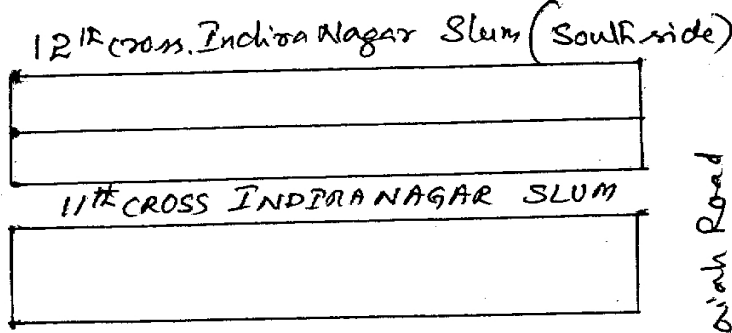 12th cross. Indira Nagar Slum (South side)
11th CROSS INDIRA NAGAR SLUM
Road